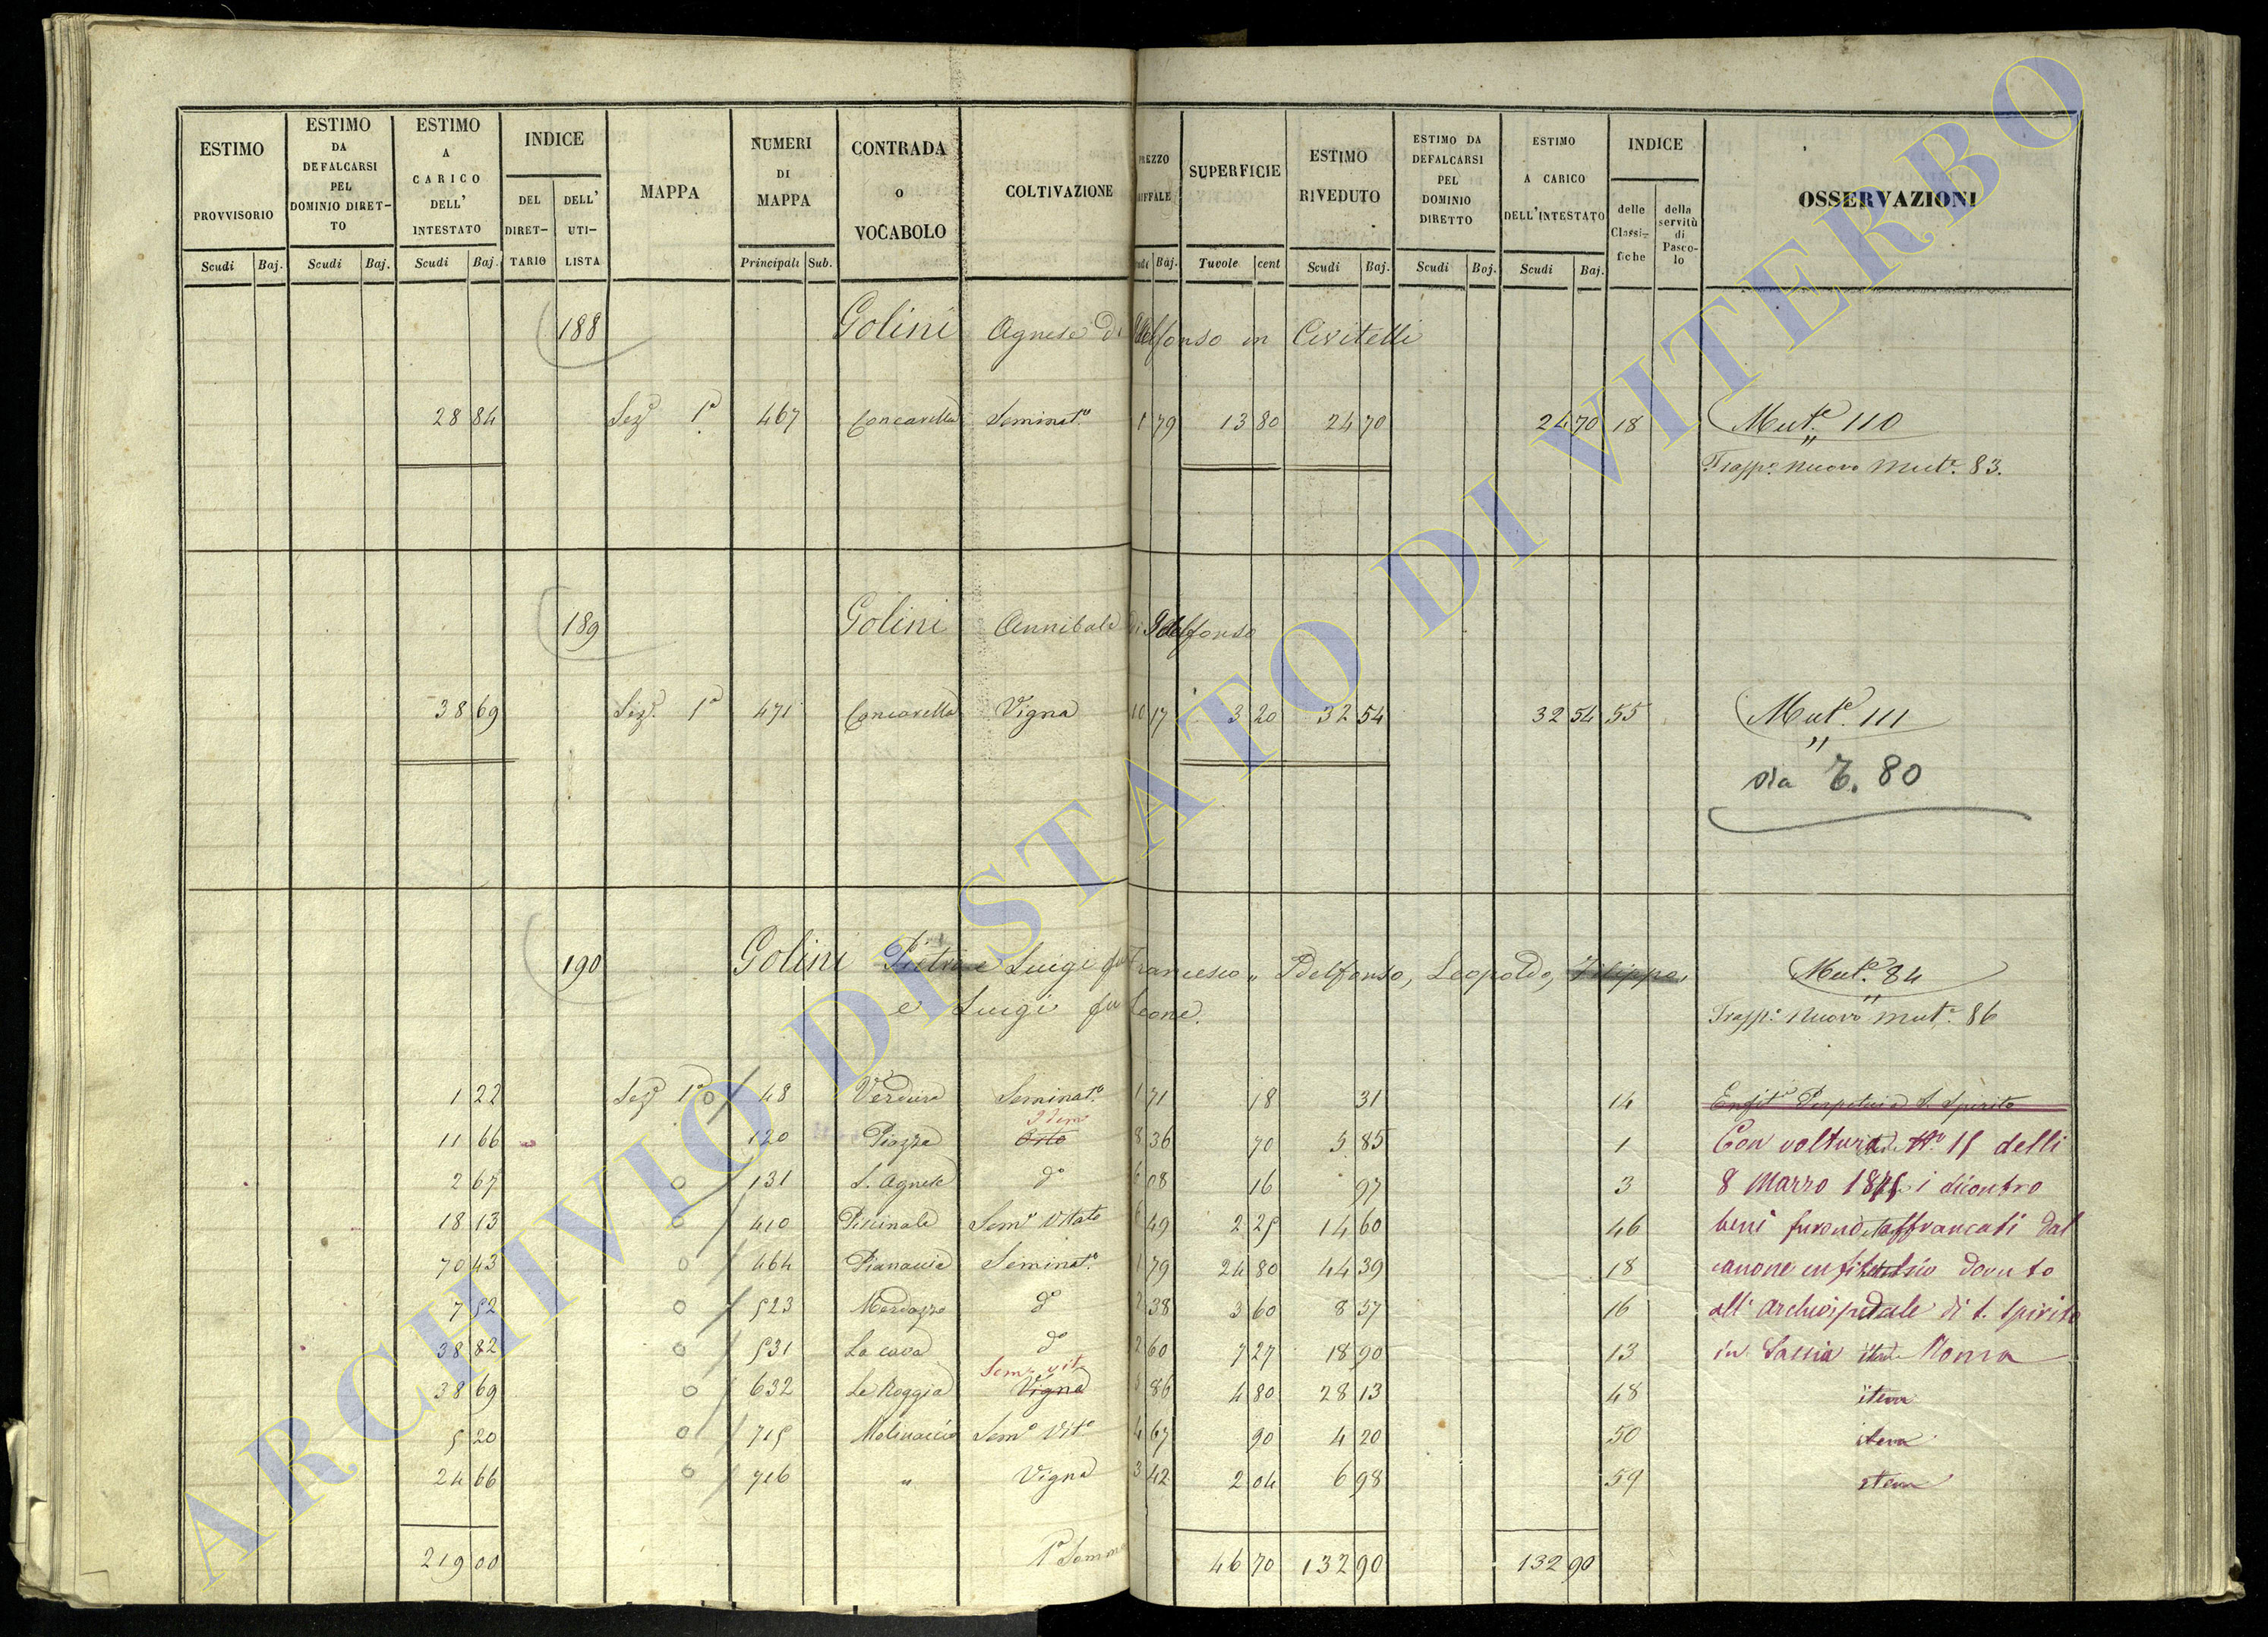 ESTIMO PROVVISORIO Scudi Baj.
ESTIMO DA DEFALCARSI PEL DOMINIO DIRET-TO Scudi Baj.
ESTIMO A CARICO DELL' INTESTATO Scudi Baj.
INDICE DEL DIRET-TARIO DELL' UTI-LISTA
MAPPA
NUMERI DI MAPPA Principali Sub.
CONTRADA o VOCABOLO
COLTIVAZIONE
Baj.
SUPERFICIE Tavole cent
ESTIMO RIVEDUTO Scudi Baj.
ESTIMO DA DEFALCARSI PEL DOMINIO DIRETTO Scudi Baj.
ESTIMO A CARICO DELL'INTESTATO Scudi Baj.
INDICE delle Classi-fiche della servitù di Pasco-lo
OSSERVAZIONI
188 Golini Agnese di Idelfonso in Civitelli
28 84 Sezᵉ 1ª 467 Concarella Seminatº 1 79 13 80 24 70 24 70 18 Mutᵉ 110
Trappº nuovo Mutᵉ 83.
189 Golini Annibale di Idelfonso
38 69 Sezᵉ 1ª 471 Concarella Vigna 10 17 3 20 32 54 32 54 55 Mutᵉ 111
80
190 Golini Pietro e Luigi fu Francesco, Idelfonso, Leopoldo, Filippo, Mutᵉ 84
e Luigi fu Leone. Trappº nuovo mutᵉ 86
1 22 Sezᵉ 1ª 48 Verdura Seminatº 1 71 18 31 14 Enfitª Perpetua S. Spirito
Idem
11 66 120 Piazza Orto 8 36 70 5 85 1 Con voltura Nº 15 delli
2 67 131 S. Agnese dº 6 08 16 97 3 8 Marzo i dicontro
18 13 410 Piscinale Semº Vitato 6 49 2 25 14 60 46 beni furono affrancati dal
70 43 464 Pianaccia Seminatº 1 79 24 80 44 39 18 canone enfiteutico dovuto
7 52 523 dº 2 38 3 60 8 57 16 all' archiospedale di S. Spirito
38 82 531 La cava dº 2 60 7 27 18 90 13 in Sassia Roma
Semº vitº
38 69 632 Le Roggia Vigna 5 86 4 80 28 13 48 item
5 20 715 Molinaccio Semº Vitº 4 67 90 4 20 50 item
24 66 716 " Vigna 3 42 2 04 6 98 59 item
219 00 1ª Somma 46 70 132 90 132 90
ARCHIVIO DI STATO DI VITERBO